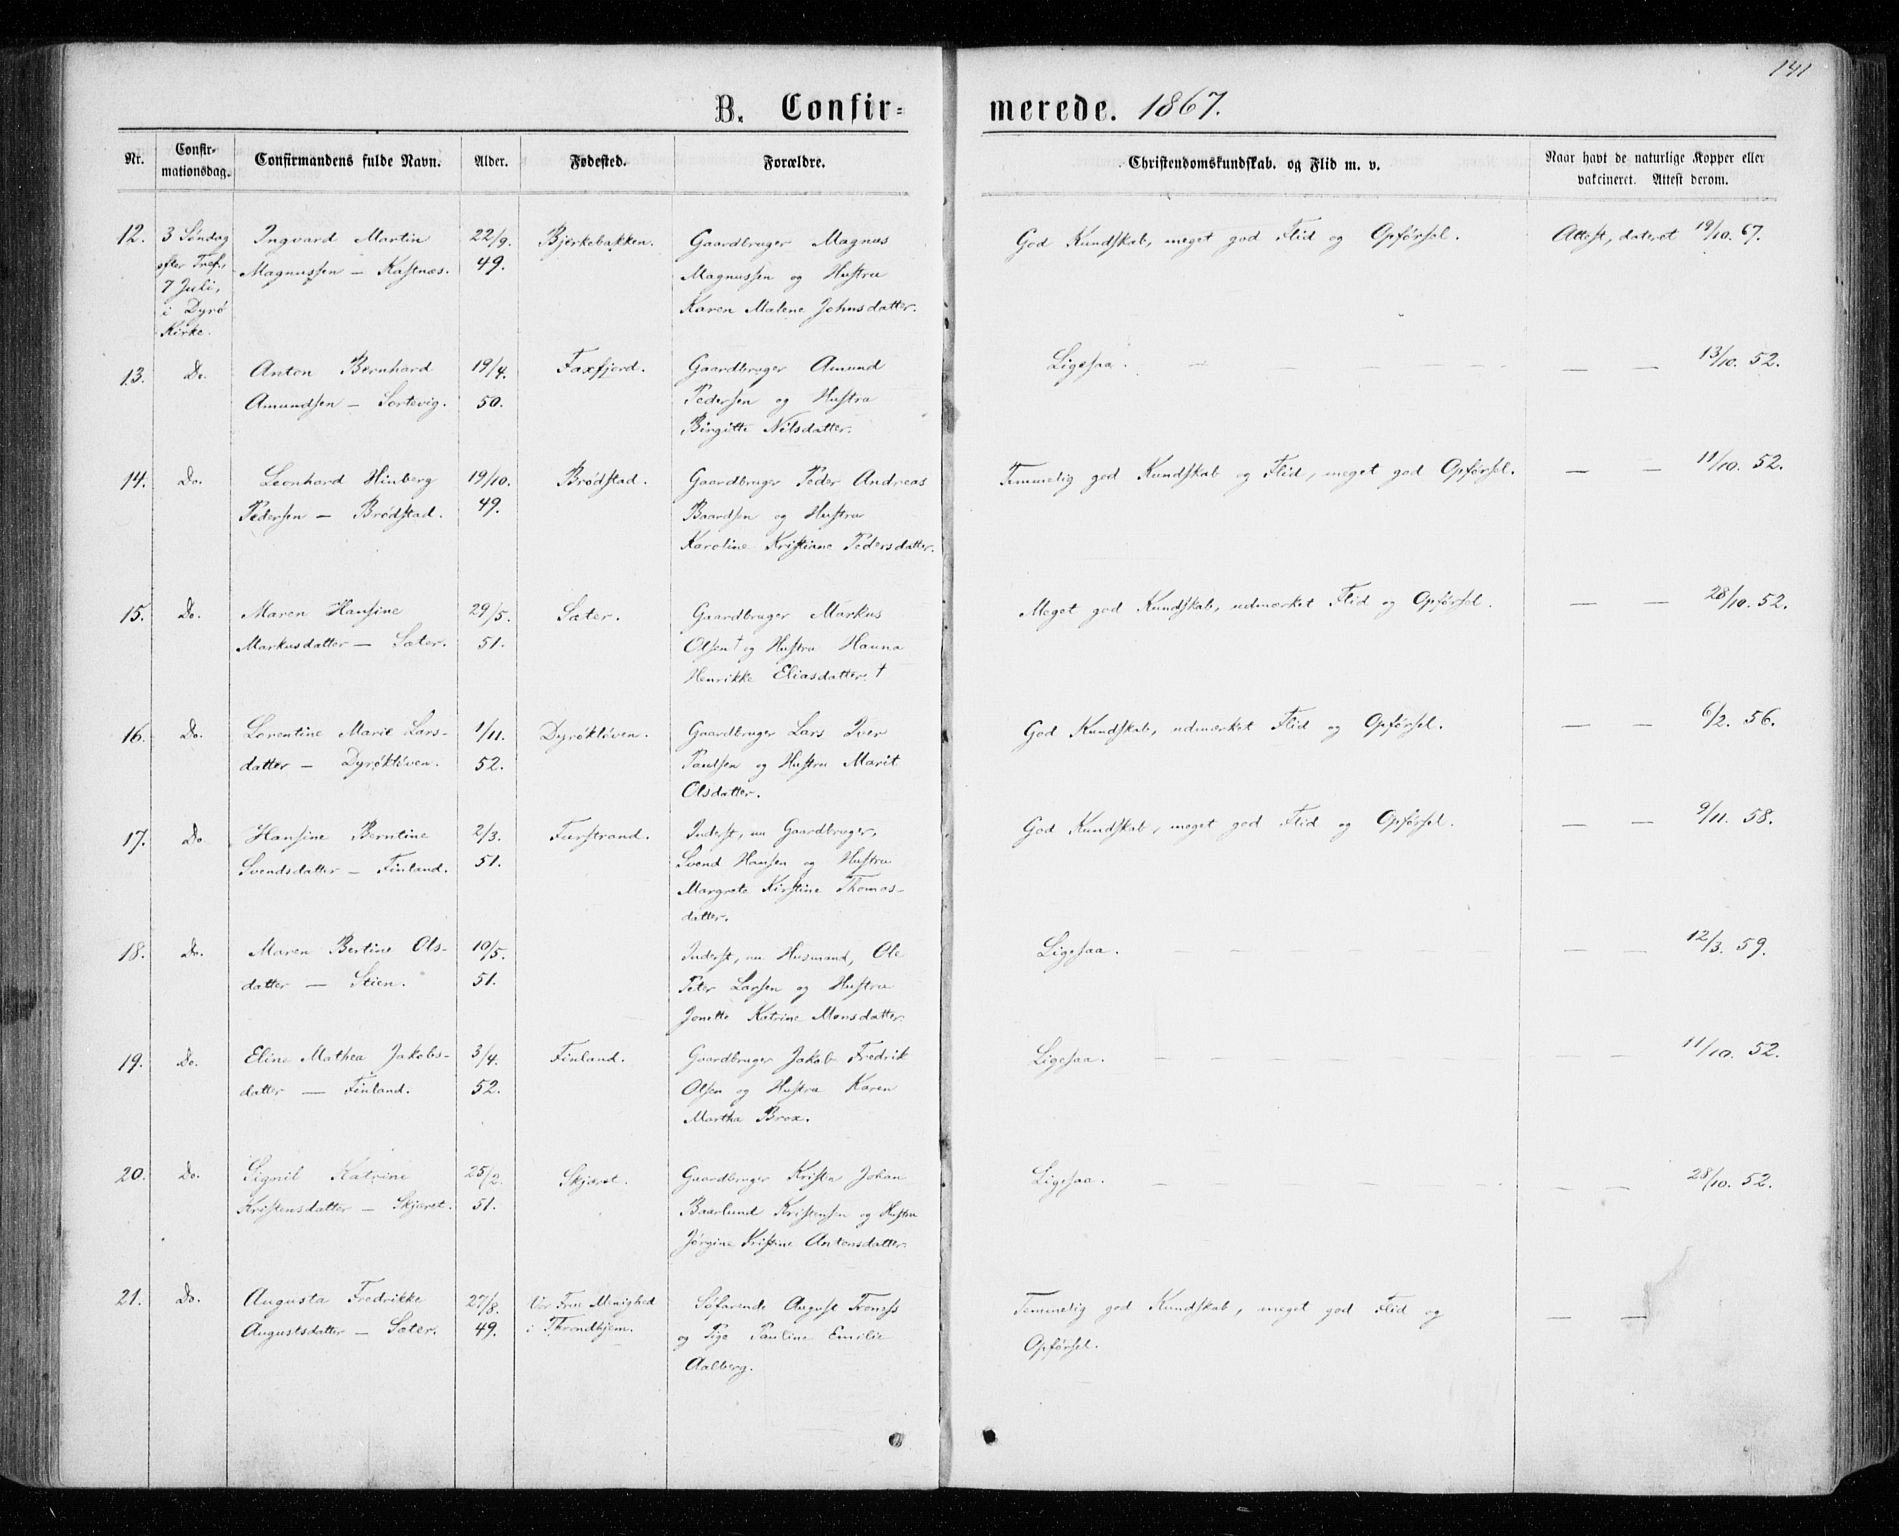 141
B. Confir-
merede. 1867.
Nr.
Confir-
mationsdag.
Confirmandens fulde Navn.
Alder.
Fødested.
Forældre.
Christendomskundskab. og Flid m. v.
Naar havt de naturlige Kopper eller
vakcineret. Attest derom.
12.
3 Søndag
efter Tref.
7 Juli,
i Dyrø
Kirke.
Ingvard Martin
Magnussen — Kastnæs.
22/9.
49.
Bjerkebakken.
Gaardbruger Magnus
Magnussen og Hustru
Karen Malene Johnsdatter.
God Kundskab, meget god Flid og Opførsel.
Attest, dateret 19/10. 67.
13.
Do.
Anton Bernhard
Amundsen — Sortevig.
19/4.
50.
Faxfjord.
Gaardbruger Amund
Pedersen og Hustru
Birgitte Nilsdatter.
Ligesaa. — — — — —
— — 13/10. 52.
14.
Do.
Leonhard Hinberg
Pedersen — Brødstad.
19/10.
49.
Brødstad.
Gaardbruger Peder Andreas
Baardsen og Hustru
Karoline Kristiane Pedersdatter.
Temmelig god Kundskab og Flid, meget god Opførsel.
— — 11/10. 52.
15.
Do.
Maren Hansine
Markusdatter — Sæter.
29/5.
51.
Sæter.
Gaardbruger Markus
Olsen † og Hustru Hanna
Henrikke Eliasdatter. †
Meget god Kundskab, udmærket Flid og Opførsel.
— — 28/10. 52.
16.
Do.
Lorentine Marie Lars-
datter — Dyrøkløven.
1/11.
52.
Dyrøkløven.
Gaardbruger Lars Iver
Paulsen og Hustru Marit
Olsdatter.
God Kundskab, udmærket Flid og Opførsel.
— — 6/2. 56.
17.
Do.
Hansine Berntine
Svendsdatter — Finland.
2/3.
51.
Furstrand.
Inderst, nu Gaardbruger,
Svend Hansen og Hustru
Margrete Kirstine Thomas-
datter.
God Kundskab, meget god Flid og Opførsel.
— — 9/11. 58.
18.
Do.
Maren Bertine Ols-
datter — Stien.
10/5.
51.
Inderst, nu Husmand, Ole
Peter Larsen og Hustru
Jonette Katrine Monsdatter.
Ligesaa. — — — — —
— — 12/3. 59.
19.
Do.
Eline Mathea Jakobs-
datter — Finland.
3/4.
52.
Finland.
Gaardbruger Jakob Fredrik
Olsen og Hustru Karen
Martha Brox.
Ligesaa. — — — — —
— — 11/10. 52.
20.
Do.
Signil Katrine
Kristensdatter — Skjæret.
25/2.
51.
Skjæret.
Gaardbruger Kristen Johan
Baarlund Kristensen og Hustru
Jørgine Kristine Antonsdatter.
Ligesaa. — — — — —
— — 28/10. 52.
21.
Do.
Augusta Fredrikke
Augustsdatter — Sæter.
27/8.
49.
Vor Frue Menighed
i Throndhjem.
Søfarende August
og Pige Pauline Emilie
Aalberg.
Temmelig god Kundskab, meget god Flid og
Opførsel.
— —